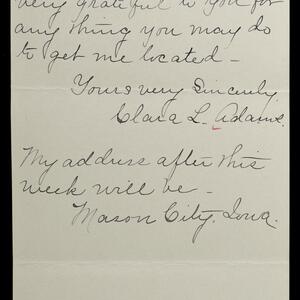 very grateful to you for
any thing you may do
to get me located -
Yours very Sincerely
Clara L. Adams.
My address after this
week will be -
Mason City, Iowa.